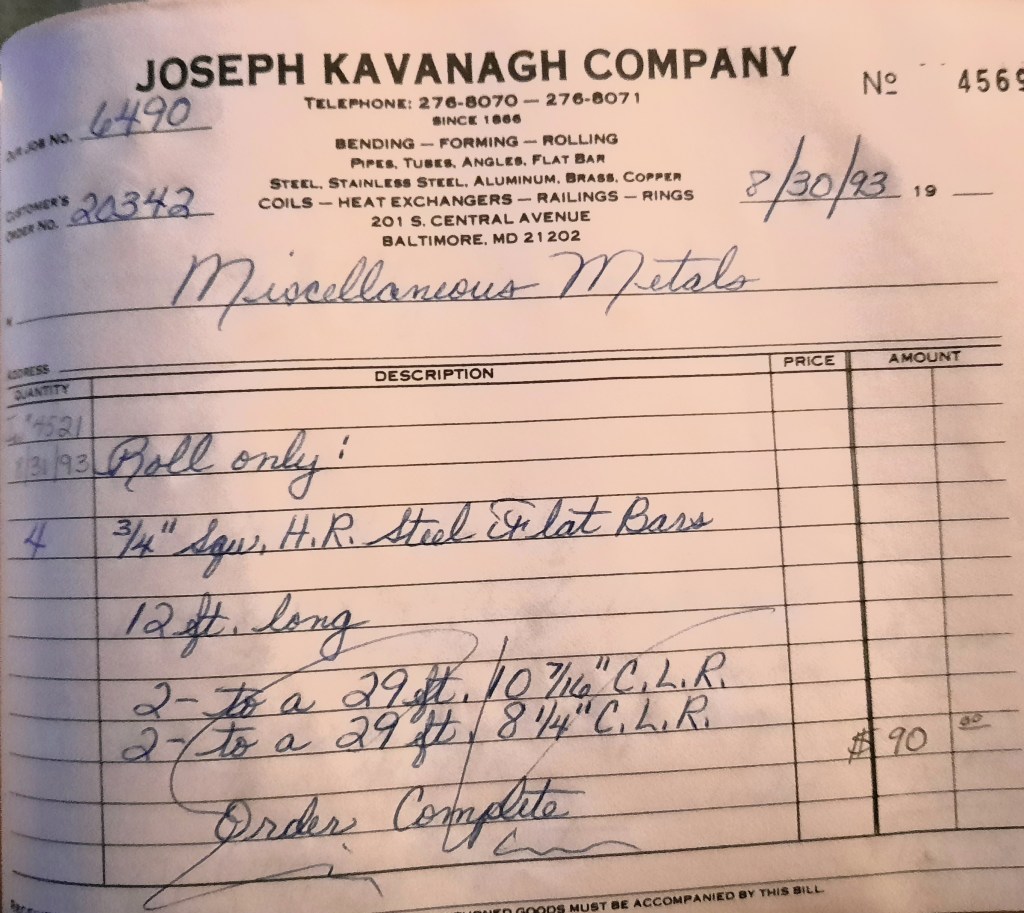 JOSEPH KAVANAGH COMPANY
Nº 4569
TELEPHONE: 276-8070 — 276-8071
SINCE 1866
OUR JOB NO. 6490
BENDING — FORMING — ROLLING
PIPES, TUBES, ANGLES, FLAT BAR
STEEL, STAINLESS STEEL, ALUMINUM, BRASS, COPPER
CUSTOMER'S ORDER NO. 20342
8/30/93 19
COILS — HEAT EXCHANGERS — RAILINGS — RINGS
201 S. CENTRAL AVENUE
BALTIMORE, MD 21202
Miscellaneous Metals
ADDRESS
QUANTITY DESCRIPTION PRICE AMOUNT
#4521
8/31/93 Roll only:
4 3/4" Squ. H.R. Steel Flat Bars
12 ft. long
2- to a 29 ft. 10 7/16" C.L.R.
2- to a 29 ft. 8 1/4" C.L.R.
$ 90 00
Order Complete
GOODS MUST BE ACCOMPANIED BY THIS BILL.